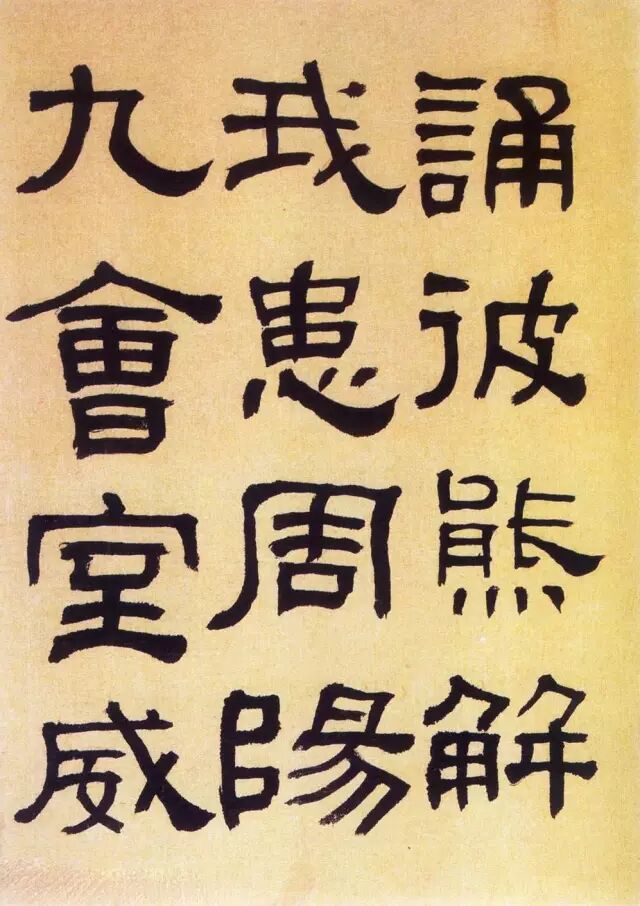 誦彼熊解
我患周陽
九會室威